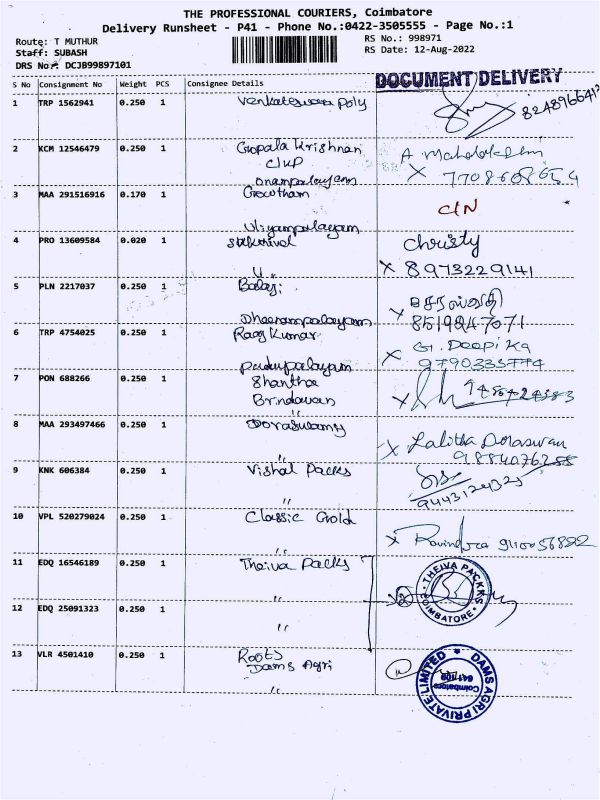 THE PROFESSIONAL COURIERS, Coimbatore
Delivery Runsheet - P41 - Phone No.:0422-3505555 - Page No.:1
Route: T MUTHUR
RS No.: 998971
Staff: SUBASH
RS Date: 12-Aug-2022
DRS No.: DCJB99897101
S No Consignment No Weight PCS Consignee Details
DOCUMENT DELIVERY
1 TRP 1562941 0.250 1 Venkateswara Poly
2 KCM 12546479 0.250 1 Gopala Krishnan
7708608654
3 MAA 291516916 0.170 1 Gowtham
C/N
4 PRO 13609584 0.020 1
Christy
8973229141
5 PLN 2217037 0.250 1 Balaji
Dheerampalayam
8519247071
6 TRP 4754025 0.250 1 Raaj Kumar
G. Deepika
9790333774
Padupalayam
7 PON 688266 0.250 1 Shantha
Brindavan
8 MAA 293497466 0.250 1 Doraswamy
Lalitha Doraswam
9884076255
9 KNK 606384 0.250 1 Vishal Packs
9443124325
10 VPL 520279024 0.250 1 Classic Gold
11 EDQ 16546189 0.250 1 Theiva Packs
THEIVA PACKKS
COIMBATORE
12 EDQ 25091323 0.250 1
13 VLR 4501410 0.250 1 Roots
Dams Agri
DAMS AGRI PRIVATE LIMITED
Coimbatore
641 109